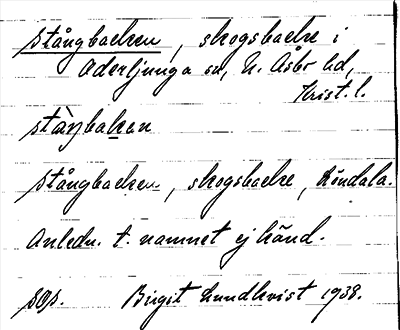 Stångbacken, skogsbacke i
Oderljunga sn, N. Åsbo hd,
Krist. l.
stàŋbakan
Stångbacken, skogsbacke, Röndala.
Anledn. t. namnet ej känd.
sgs. Birgit Lundkvist 1938.